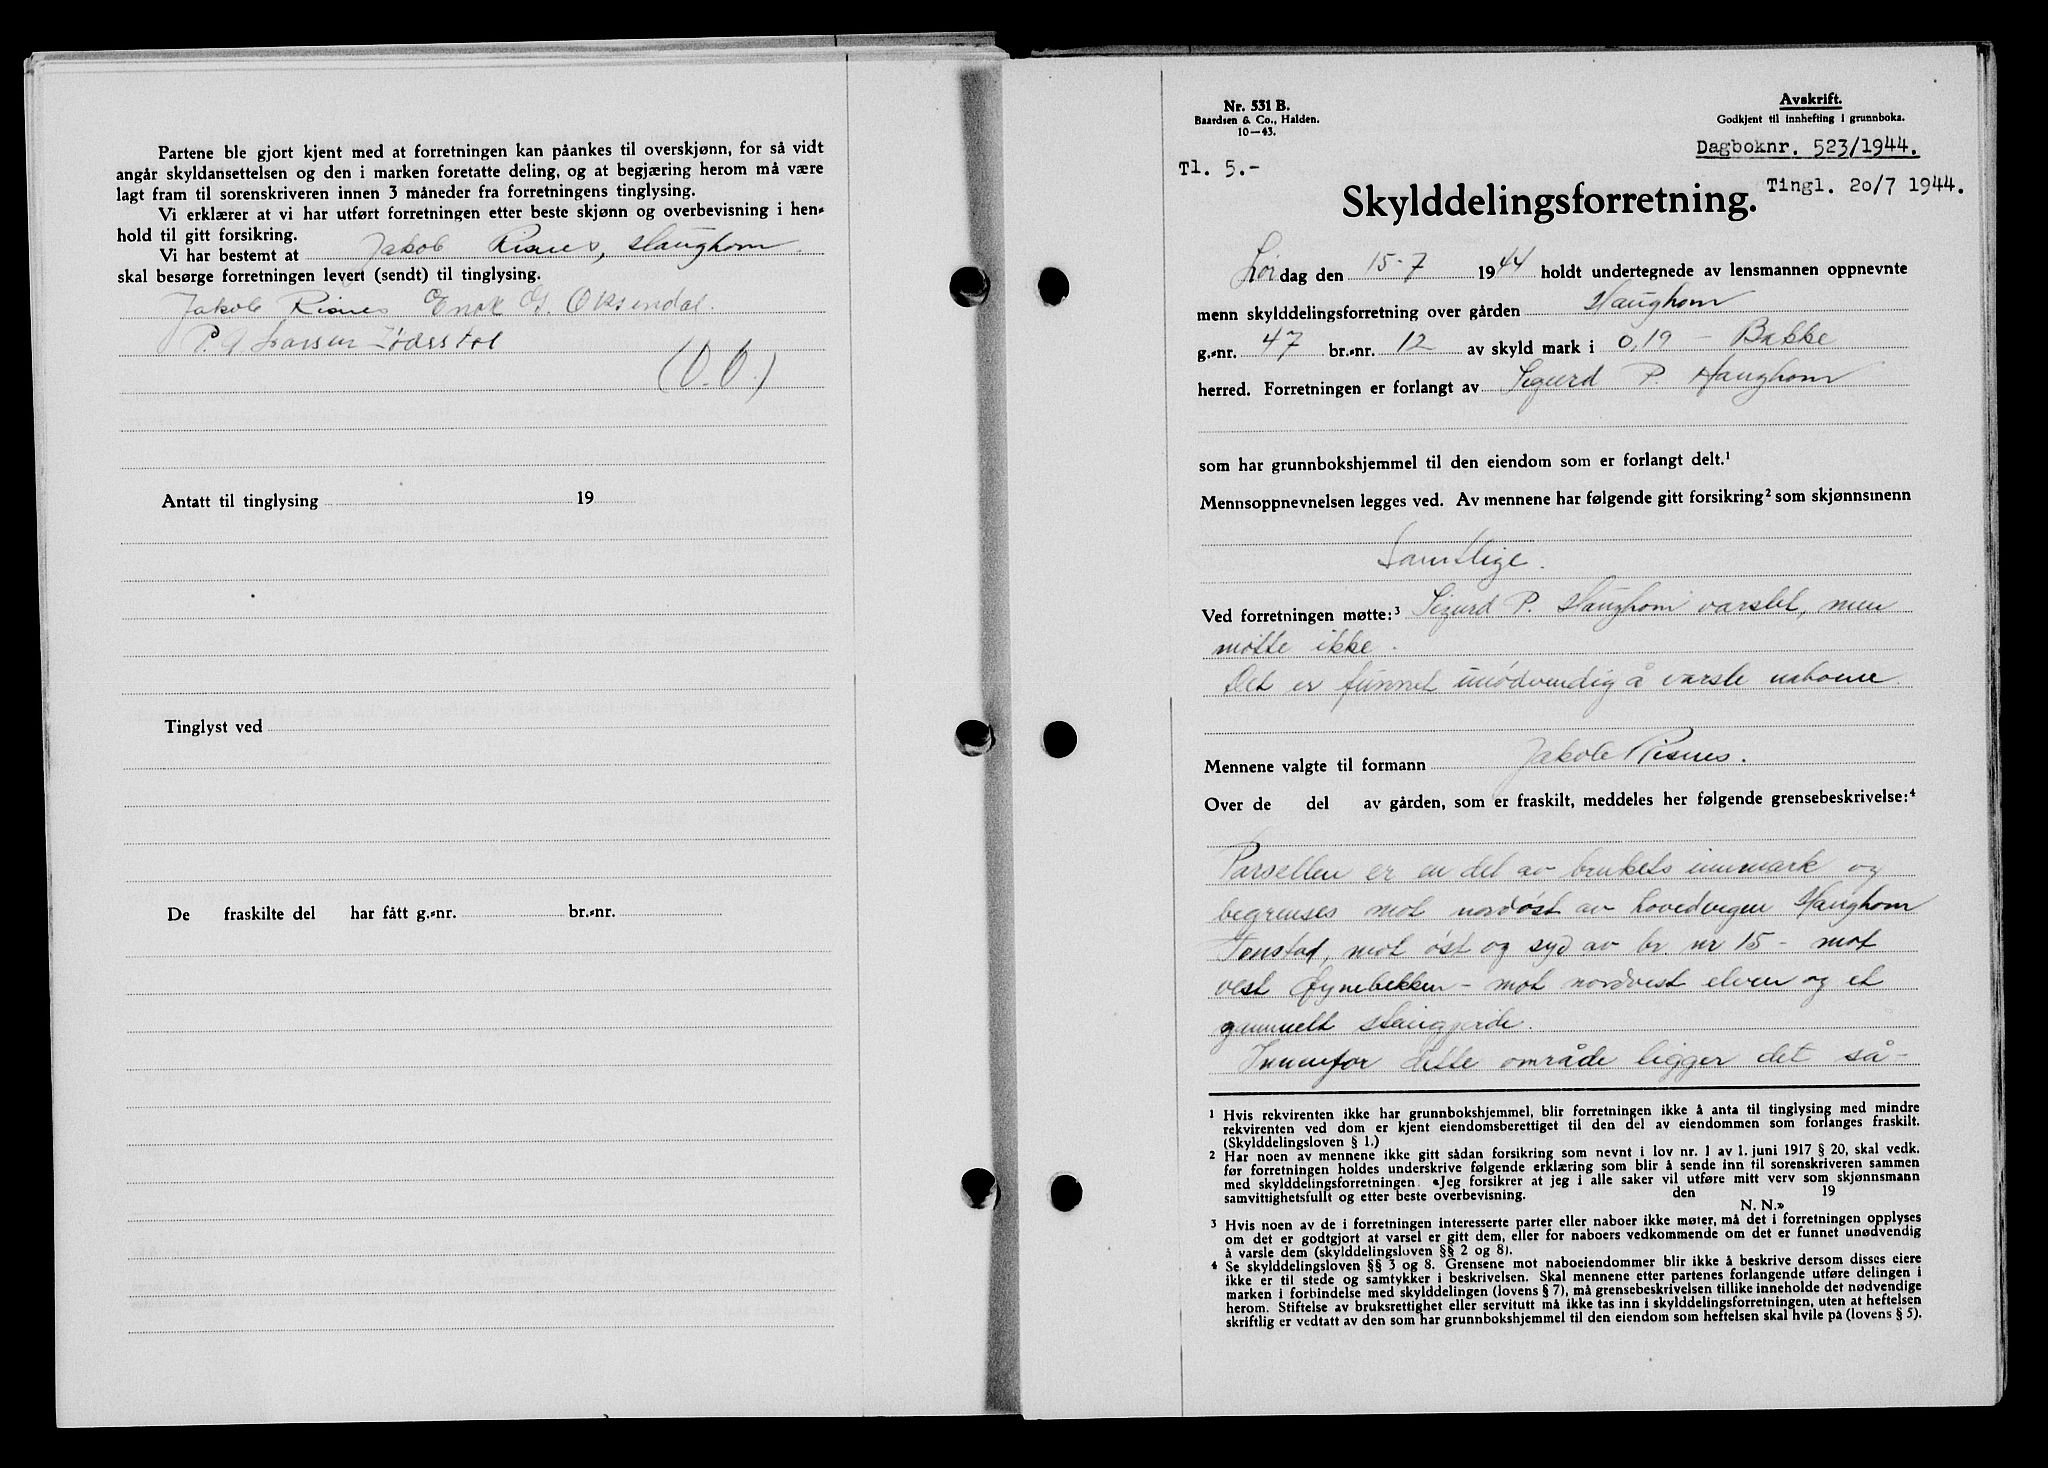 Partene ble gjort kjent med at forretningen kan påankes til overskjønn, for så vidt
angår skyldansettelsen og den i marken foretatte deling, og at begjæring herom må være
lagt fram til sorenskriveren innen 3 måneder fra forretningens tinglysing.
Vi erklærer at vi har utført forretningen etter beste skjønn og overbevisning i hen-
hold til gitt forsikring.
Vi har bestemt at Jakob Risnes, Haughom
skal besørge forretningen levert (sendt) til tinglysing.
Jakob Risnes Enok G. Oksendal.
P. G Larsen Jødestøl
Antatt til tinglysing 19
Tinglyst ved
De fraskilte del har fått g.-nr. br.-nr.
Nr. 531 B.
Baardsen & Co., Halden.
10—43.
Avskrift.
Godkjent til innhefting i grunnboka.
Dagboknr. 523/1944.
Tl. 5.-
Tingl. 20/7 1944.
Skylddelingsforretning.
Lør dag den 15-7 1944 holdt undertegnede av lensmannen oppnevnte
menn skylddelingsforretning over gården Haughom
g.-nr. 47 br.-nr. 12 av skyld mark i 0,19 - Bakke
herred. Forretningen er forlangt av Sigurd P. Haughom
som har grunnbokshjemmel til den eiendom som er forlangt delt.¹
Mennsoppnevnelsen legges ved. Av mennene har følgende gitt forsikring² som skjønnsmenn
Samtlige.
Ved forretningen møtte:³ Sigurd P. Haughom varslet, men
møtte ikke.
Det er funnet unødvendig å varsle naboene
Mennene valgte til formann Jakob Risnes.
Over de del av gården, som er fraskilt, meddeles her følgende grensebeskrivelse:⁴
Parsellen er en del av brukets innmark og
begrenses mot nordøst av hovedvegen Haughom
Tonstad, mot øst og syd av br. nr 15 - mot
vest Øynebekken - mot nordvest elven og et
gammelt steingjerde.
Innenfor dette område ligger det så-
¹ Hvis rekvirenten ikke har grunnbokshjemmel, blir forretningen ikke å anta til tinglysing med mindre
rekvirenten ved dom er kjent eiendomsberettiget til den del av eiendommen som forlanges fraskilt.
(Skylddelingsloven § 1.)
² Har noen av mennene ikke gitt sådan forsikring som nevnt i lov nr. 1 av 1. juni 1917 § 20, skal vedk.
før forretningen holdes underskrive følgende erklæring som blir å sende inn til sorenskriveren sammen
med skylddelingsforretningen. «Jeg forsikrer at jeg i alle saker vil utføre mitt verv som skjønnsmann
samvittighetsfullt og etter beste overbevisning. den 19
N. N.»
³ Hvis noen av de i forretningen interesserte parter eller naboer ikke møter, må det i forretningen opplyses
om det er godtgjort at varsel er gitt dem, eller for naboers vedkommende om det er funnet unødvendig
å varsle dem (skylddelingsloven §§ 2 og 8).
⁴ Se skylddelingsloven §§ 3 og 8. Grensene mot naboeiendommer blir ikke å beskrive dersom disses eiere
ikke er til stede og samtykker i beskrivelsen. Skal mennene etter partenes forlangende utføre delingen i
marken i forbindelse med skylddelingen (lovens § 7), må grensebeskrivelsen tillike inneholde det nødvendige
herom. Stiftelse av bruksrettighet eller servitutt må ikke tas inn i skylddelingsforretningen, uten at heftelsen
skriftlig er vedtatt av den som har grunnbokshjemmel til den eiendom som heftelsen skal hvile på (lovens § 5).